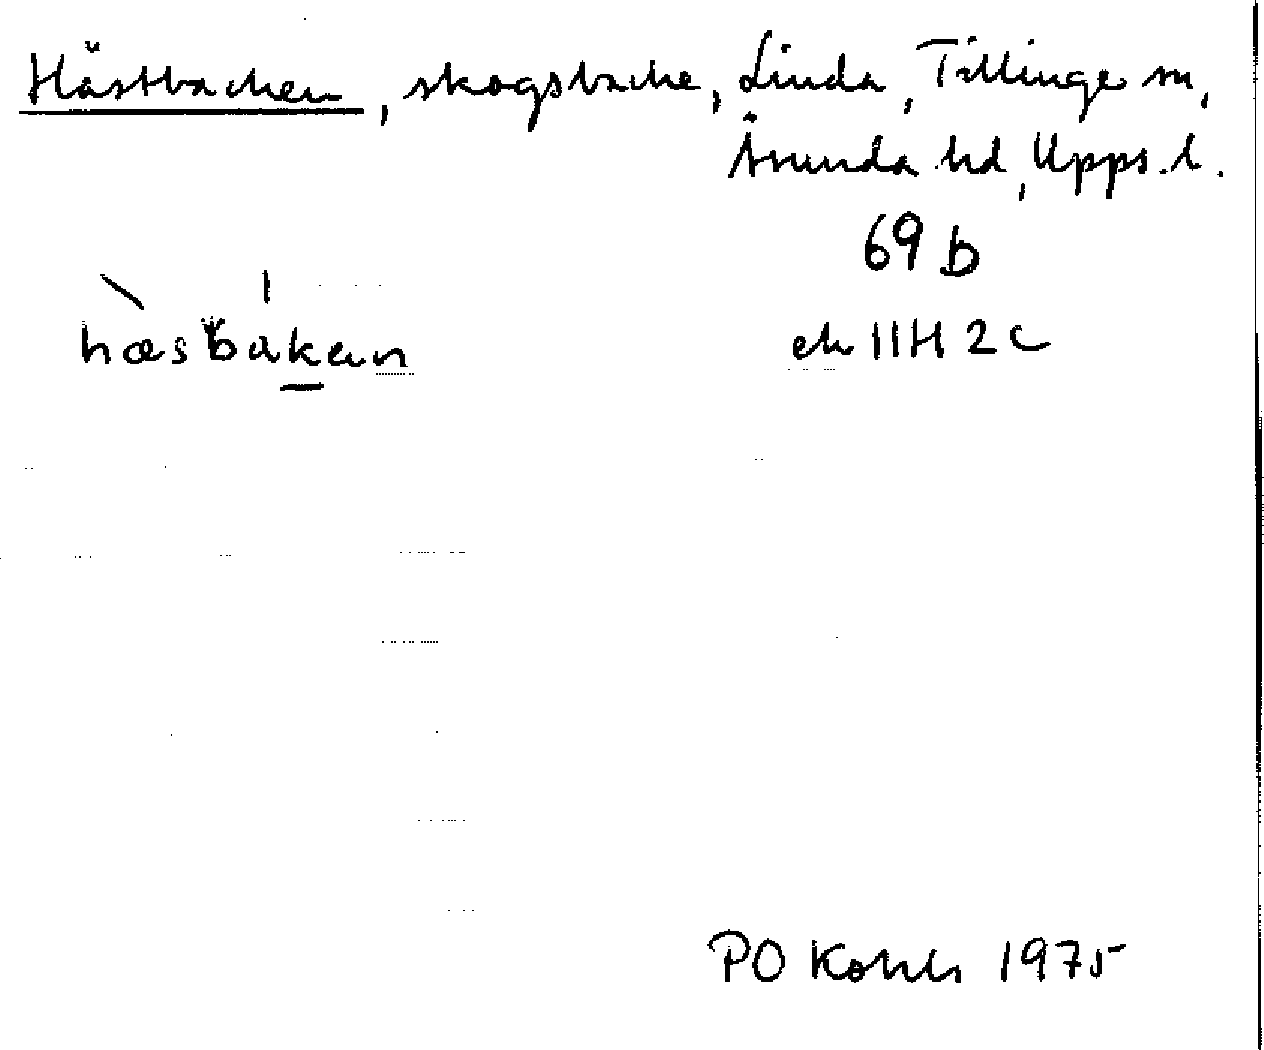 Hästbacken, skogsbacke, Linda, Tillinge sn,
Åsunda hd, Upps. l.
69 b
hæsbakan
ek 11H 2c
PO 1975